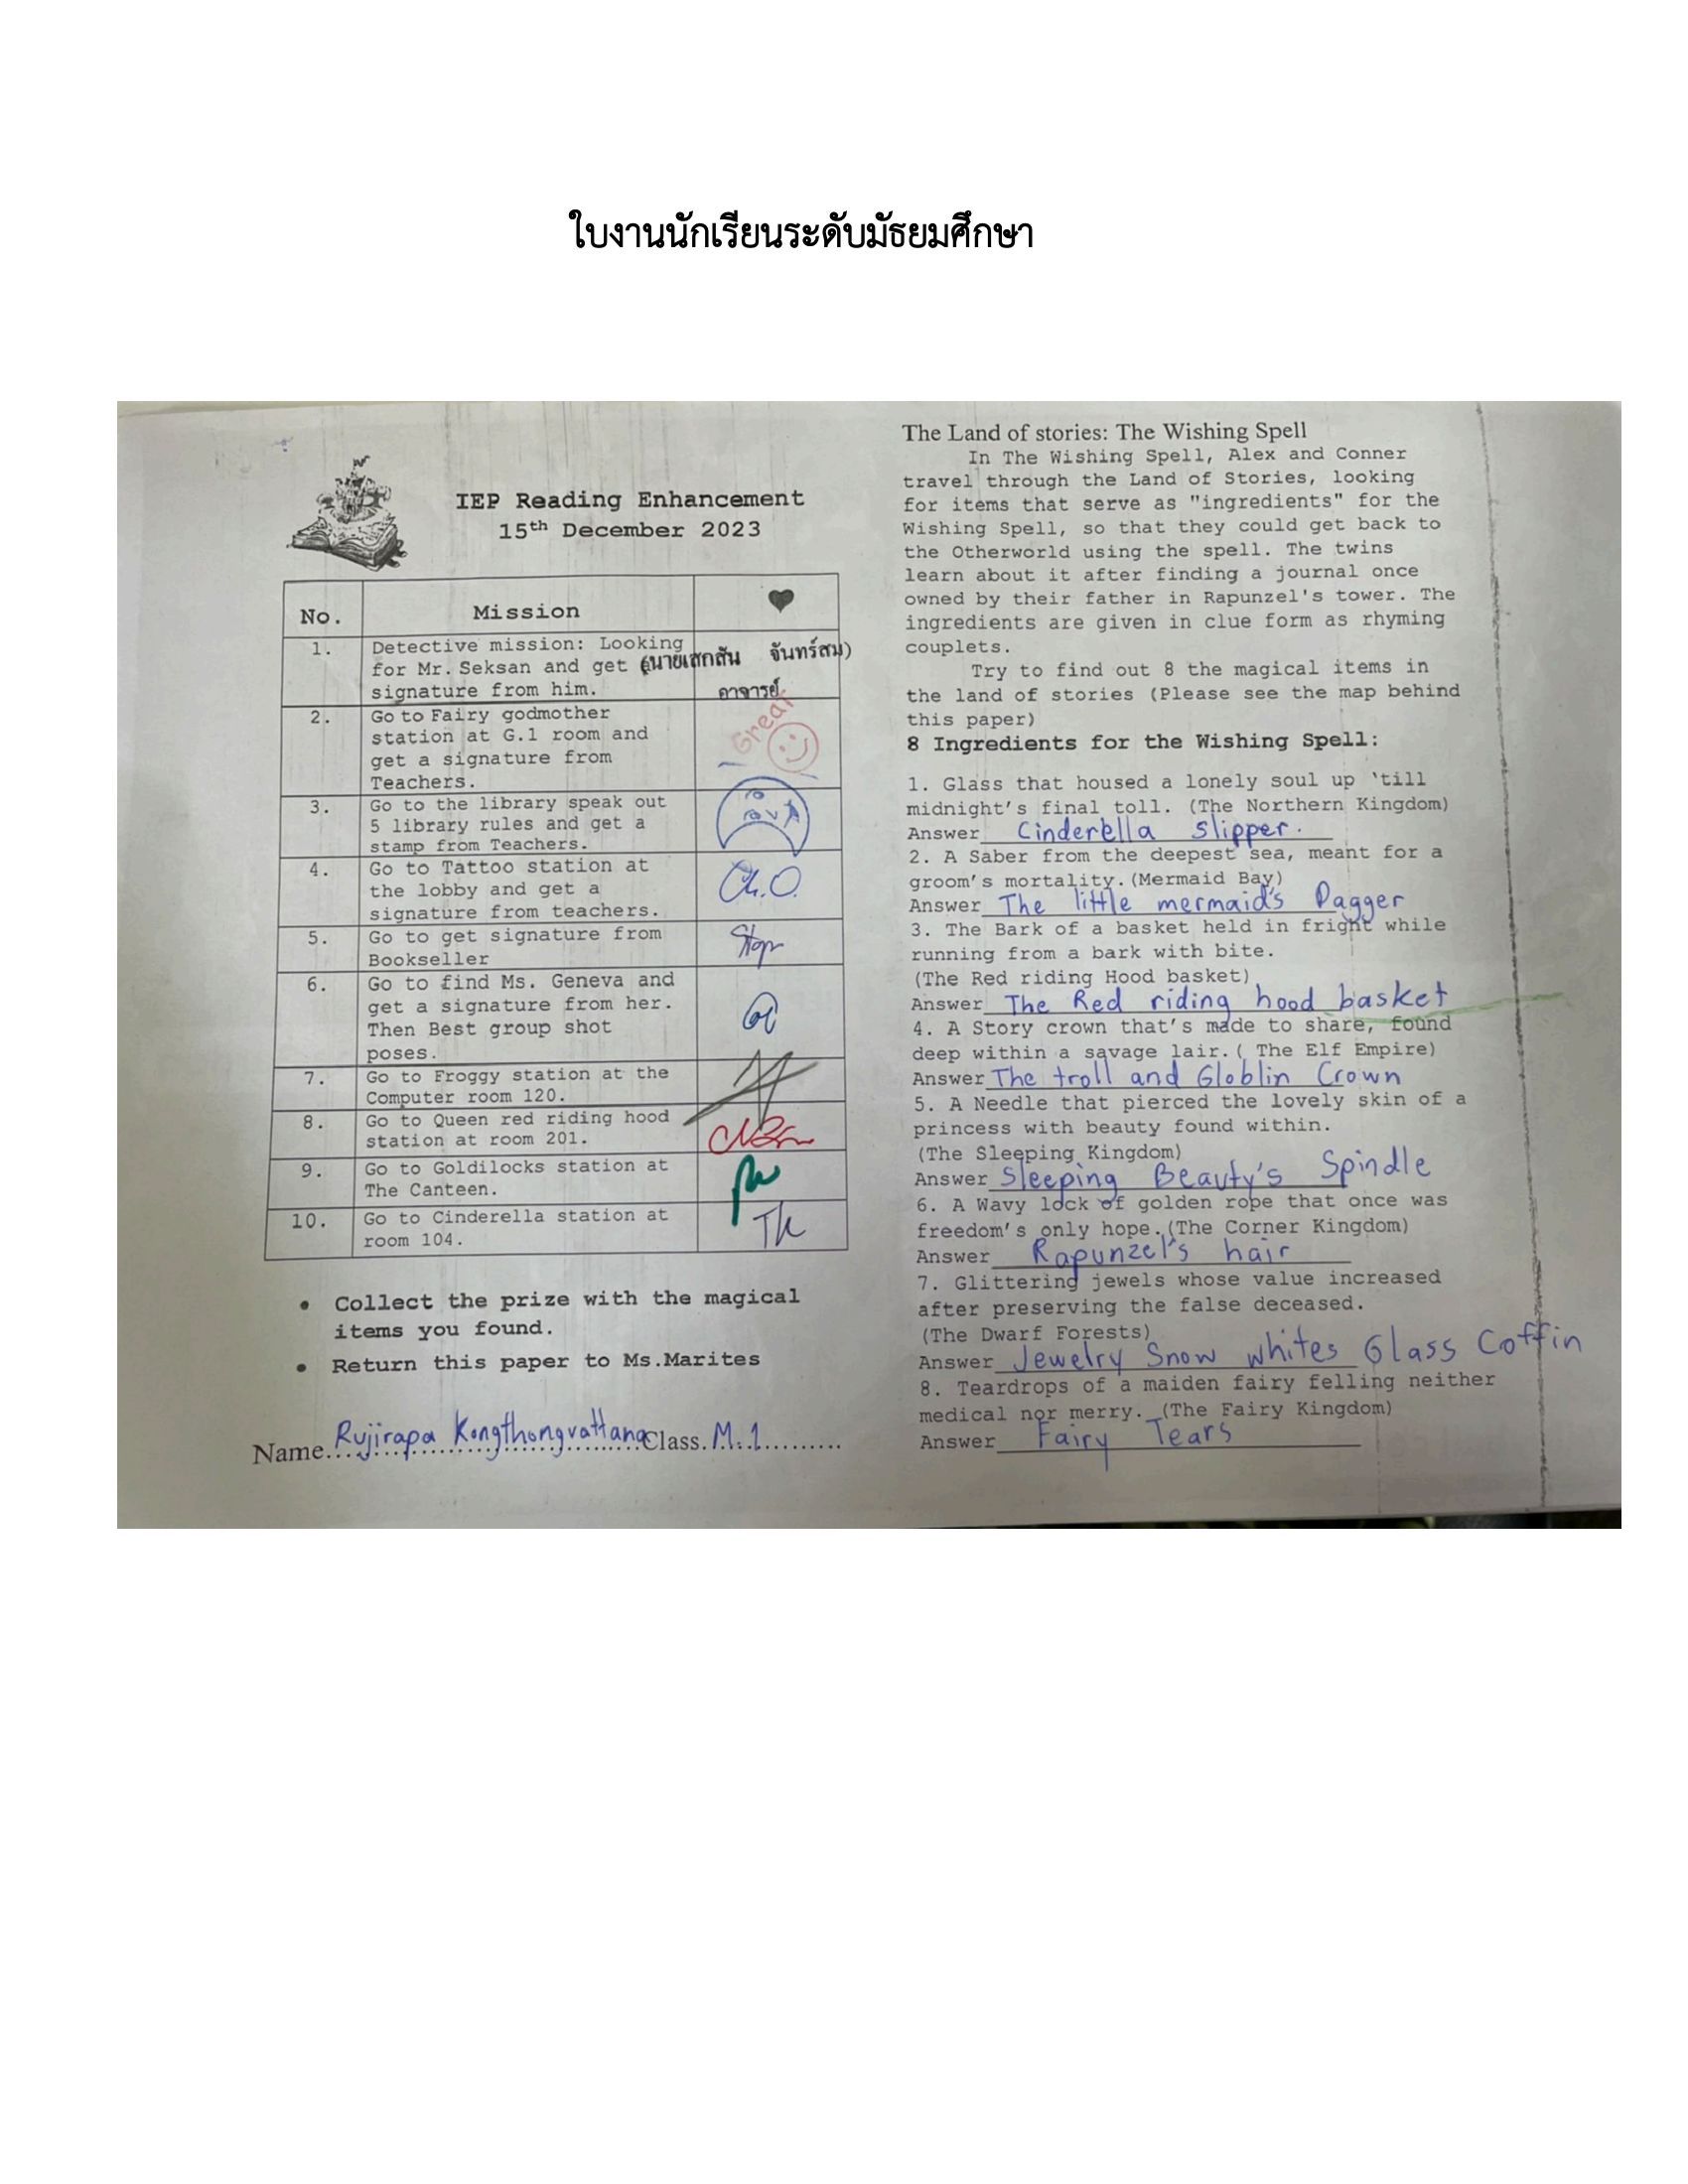 ใบงานนักเรียนระดับมัธยมศึกษา
IEP Reading Enhancement
15th December 2023
No. Mission ♥
1. Detective mission: Looking
for Mr. Seksan and get (นายเสกสัน จันทร์สม)
signature from him. อาจารย์
2. Go to Fairy godmother
station at G.1 room and
get a signature from
Teachers.
Great
3. Go to the library speak out
5 library rules and get a
stamp from Teachers.
4. Go to Tattoo station at
the lobby and get a
signature from teachers.
5. Go to get signature from
Bookseller
6. Go to find Ms. Geneva and
get a signature from her.
Then Best group shot
poses.
7. Go to Froggy station at the
Computer room 120.
8. Go to Queen red riding hood
station at room 201.
9. Go to Goldilocks station at
The Canteen.
10. Go to Cinderella station at
room 104.
• Collect the prize with the magical
items you found.
• Return this paper to Ms.Marites
Name...Rujirapa Kongthongvattana Class.M.1.........
The Land of stories: The Wishing Spell
In The Wishing Spell, Alex and Conner
travel through the Land of Stories, looking
for items that serve as "ingredients" for the
Wishing Spell, so that they could get back to
the Otherworld using the spell. The twins
learn about it after finding a journal once
owned by their father in Rapunzel's tower. The
ingredients are given in clue form as rhyming
couplets.
Try to find out 8 the magical items in
the land of stories (Please see the map behind
this paper)
8 Ingredients for the Wishing Spell:
1. Glass that housed a lonely soul up 'till
midnight's final toll. (The Northern Kingdom)
Answer Cinderella Slipper.
2. A Saber from the deepest sea, meant for a
groom's mortality.(Mermaid Bay)
Answer The little mermaid's Dagger
3. The Bark of a basket held in fright while
running from a bark with bite.
(The Red riding Hood basket)
Answer The Red riding hood basket
4. A Story crown that's made to share, found
deep within a savage lair.( The Elf Empire)
Answer The troll and Globlin Crown
5. A Needle that pierced the lovely skin of a
princess with beauty found within.
(The Sleeping Kingdom)
Answer Sleeping Beauty's Spindle
6. A Wavy lock of golden rope that once was
freedom's only hope.(The Corner Kingdom)
Answer Rapunzel's hair
7. Glittering jewels whose value increased
after preserving the false deceased.
(The Dwarf Forests)
Answer Jewelry Snow whites Glass Coffin
8. Teardrops of a maiden fairy felling neither
medical nor merry. (The Fairy Kingdom)
Answer Fairy Tears